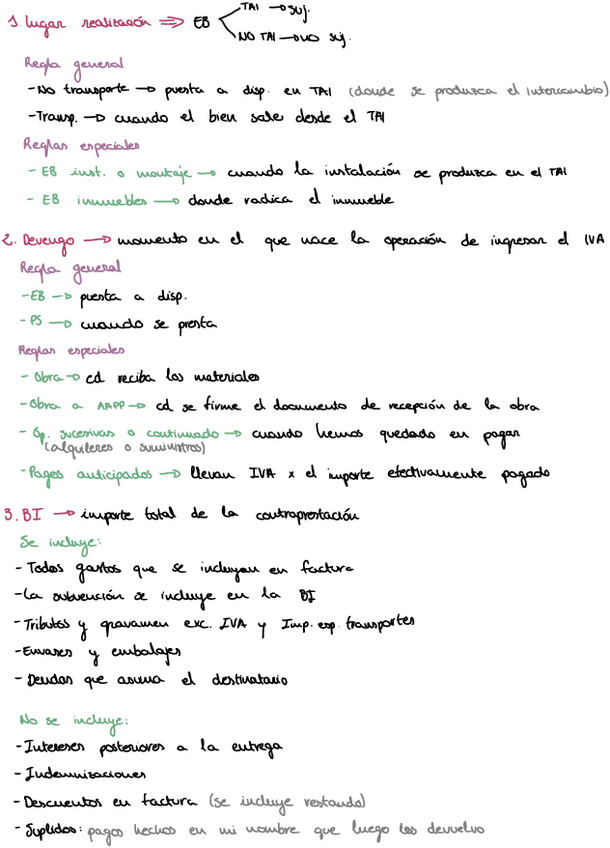 1. Lugar realización ⇒ EB
TAI → suj.
NO TAI → no suj.
Regla general
- No transporte → puesta a disp. en TAI (donde se produzca el intercambio)
- Transp. → cuando el bien sale desde el TAI
Reglas especiales
- EB inst. o montaje → cuando la instalación se produzca en el TAI
- EB inmuebles → donde radica el inmueble
2. Devengo → momento en el que nace la operación de ingresar el IVA
Regla general
- EB → puesta a disp.
- PS → cuando se presta
Reglas especiales
- Obra → cd reciba los materiales
- Obra a AAPP → cd se firme el documento de recepción de la obra
- Op. sucesivas o continuado → cuando hemos quedado en pagar
(alquileres o suministros)
- Pagos anticipados → llevan IVA x el importe efectivamente pagado
3. BI → importe total de la contraprestación
Se incluye:
- Todos gastos que se incluyan en factura
- La subvención se incluye en la BI
- Tributos y gravamen exc. IVA y Imp. esp. transportes
- Envases y embalajes
- Deudas que asuma el destinatario
No se incluye:
- Intereses posteriores a la entrega
- Indemnizaciones
- Descuentos en factura (se incluye restando)
- Suplidos: pagos hechos en mi nombre que luego les devuelvo